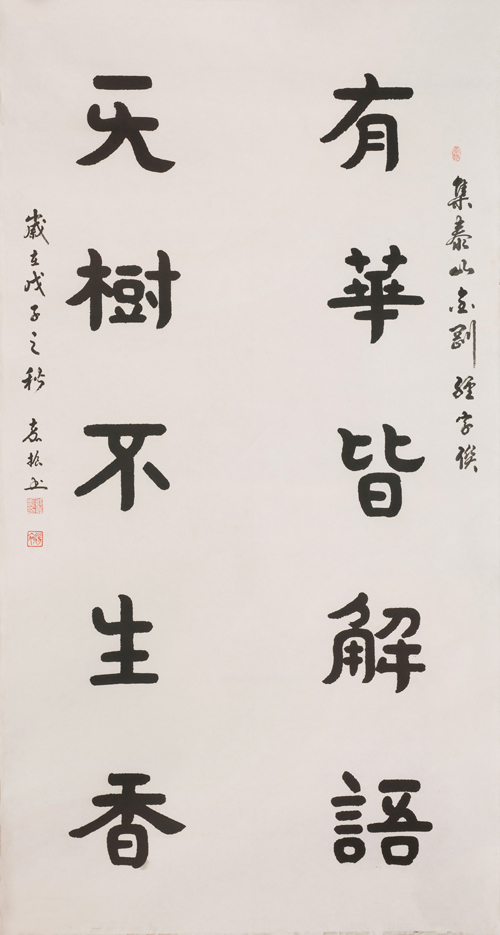 集泰山金剛經字聯
有華皆解語
无樹不生香
歲在戊子之秋